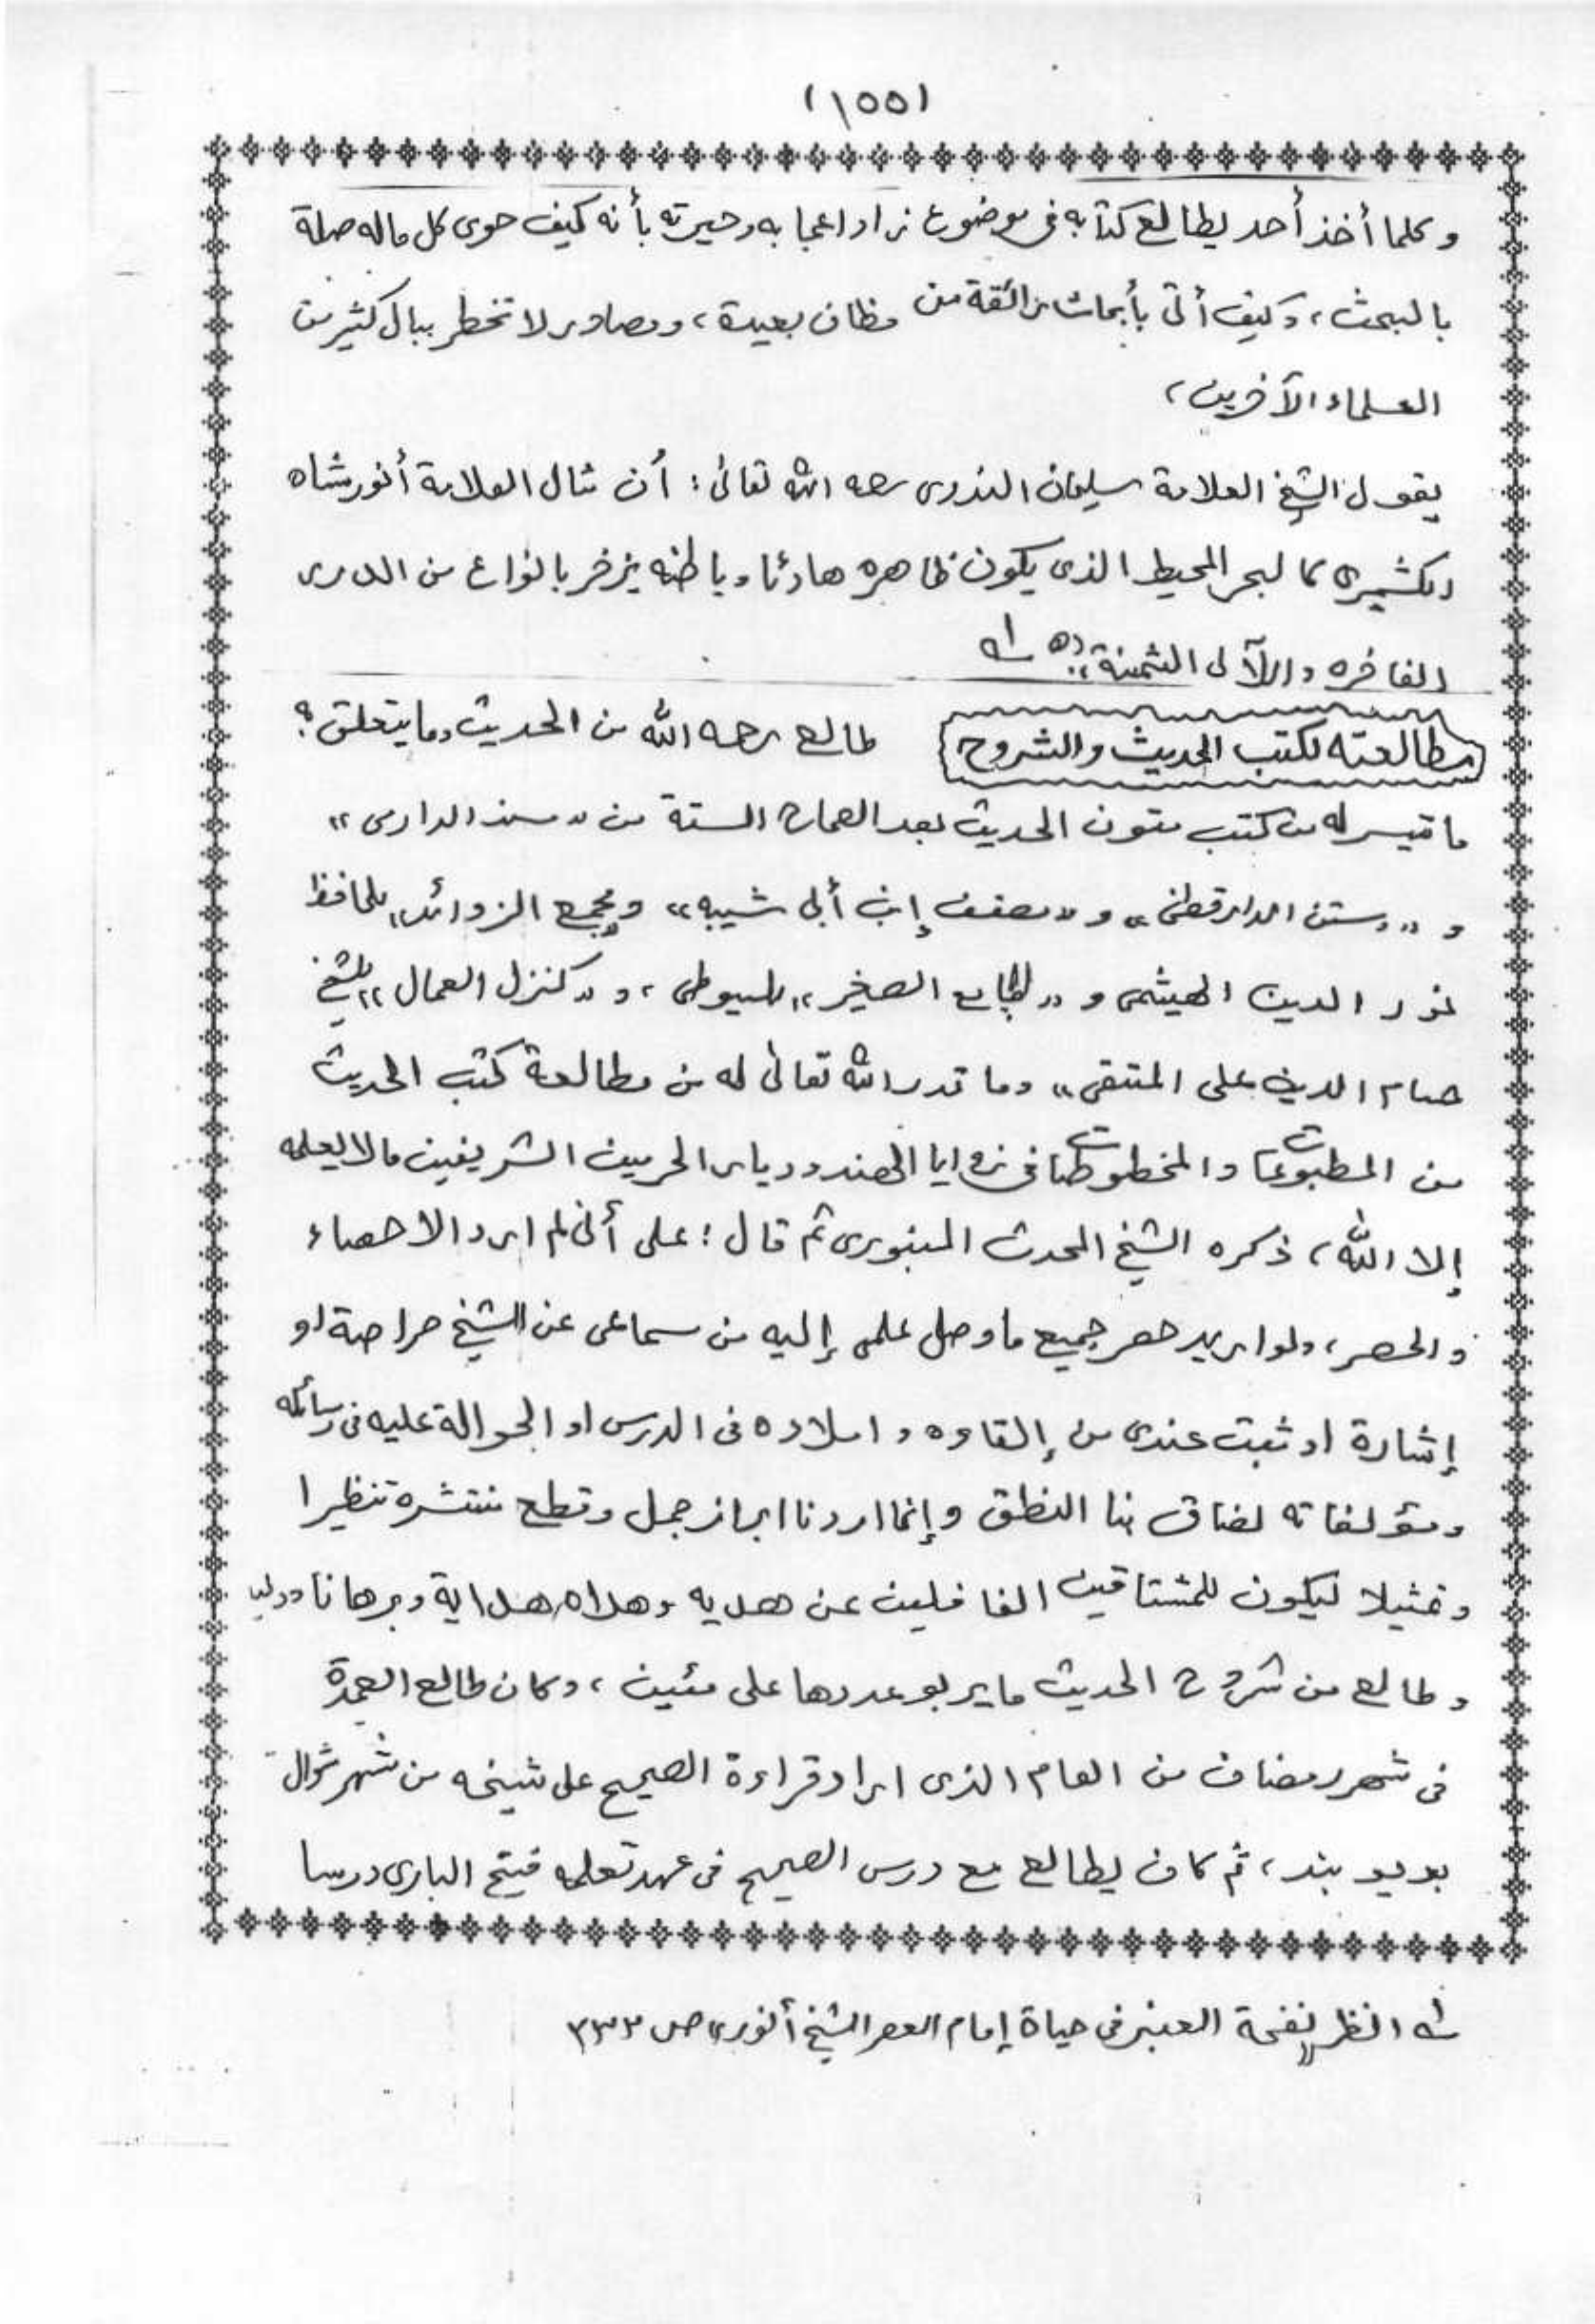 (١٥٥)
وكلما أخذ أحد يطالع كتابه فى موضوع زاد اعجابه وحيرته بأنه كيف حوى كل ماله صلة
بالبحث، وكيف أتى بأبحاث رائقة من مظان بعيدة، ومصادر لا تخطر ببال كثير من
العلماء الآخرين،
يقول الشيخ العلامة سليمان الندوى رحمه الله تعالى: أن مثال العلامة أنور شاه
الكشميرى كالبحر المحيط الذى يكون ظاهره هادئا وباطنه يزخر بانواع من الدرر
الفاخره واللآلى الثمينة،، اه ١ه
مطالعته لكتب الحديث والشروح طالع رحمه الله من الحديث وما يتعلق به
ما تيسر له من كتب متون الحديث بعد الصحاح الستة من "مسند الدارمى"
و "سنن الدارقطنى" و "مصنف إبن أبى شيبه" ومجمع الزوائد" للحافظ
نور الدين الهيثمى و "الجامع الصغير" للسيوطى، و "كنزل العمال" للشيخ
حسام الدين على المتقى" وما قدر الله تعالى له من مطالعة كتب الحديث
من المطبوعات والمخطوطات فى زوايا الهند وديار الحرمين الشريفين مالا يعلمه
إلا الله، ذكره الشيخ المحدث البنورى ثم قال: على أنى لم ارد الاحصاء
والحصر، ولو اريد حصر جميع ما وصل علمى إليه من سماعى عن الشيخ صراحة او
إشارة او ثبت عندى من إلقاوه واملاده فى الدرس او الحوالة عليه فى رسائله
ومؤلفاته لضاق بنا النطق وإنما اردنا ابراز جمل وقطع منتشره تنظيرا
وتمثيلا ليكون للمشتاقين الغافلين عن هديه وهداه هداية وبرهانا ودليـ
وطالع من شروح الحديث ما يربو عددها على مئين، وكان طالع العمدة
فى شهر رمضان من العام الذى اراد قراءة الصحيح على شيخه من شهر شوال
بديو بند، ثم كان يطالع مع درس الصحيح فى عهد تعلمه فتح البارى درسا
١ه انظر نفحة العنبر فى حياة إمام العصر الشيخ أنور" ص ٣٣٢